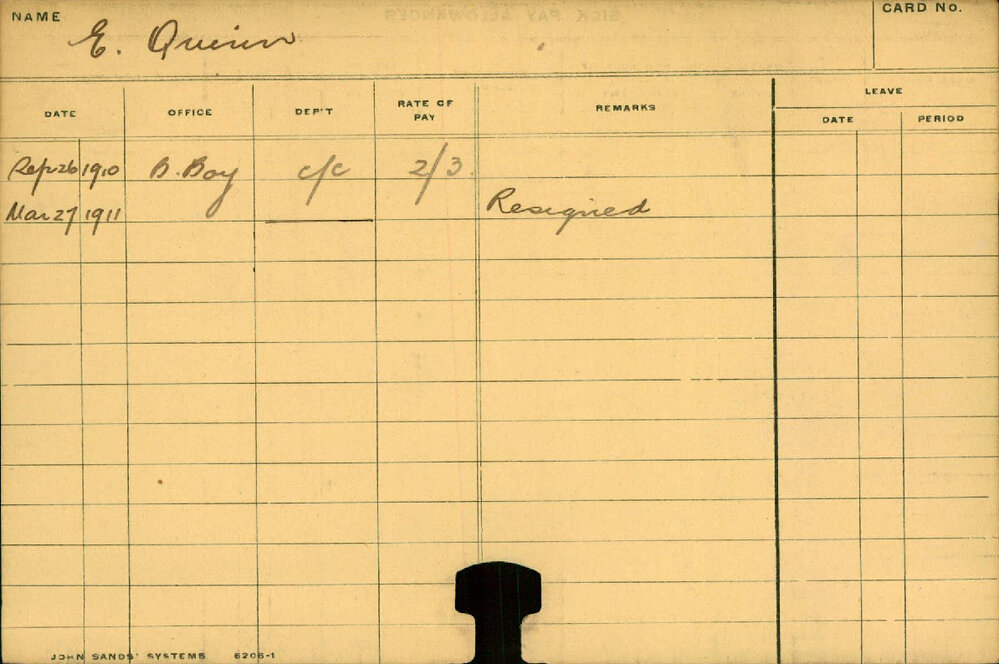 NAME E. Quinn CARD No.
DATE OFFICE DEP'T RATE OF PAY REMARKS LEAVE
DATE PERIOD
Sep 26 1910 B. Boy c/c 2/3
Mar 27 1911 Resigned
JOHN SANDS' SYSTEMS 6206-1